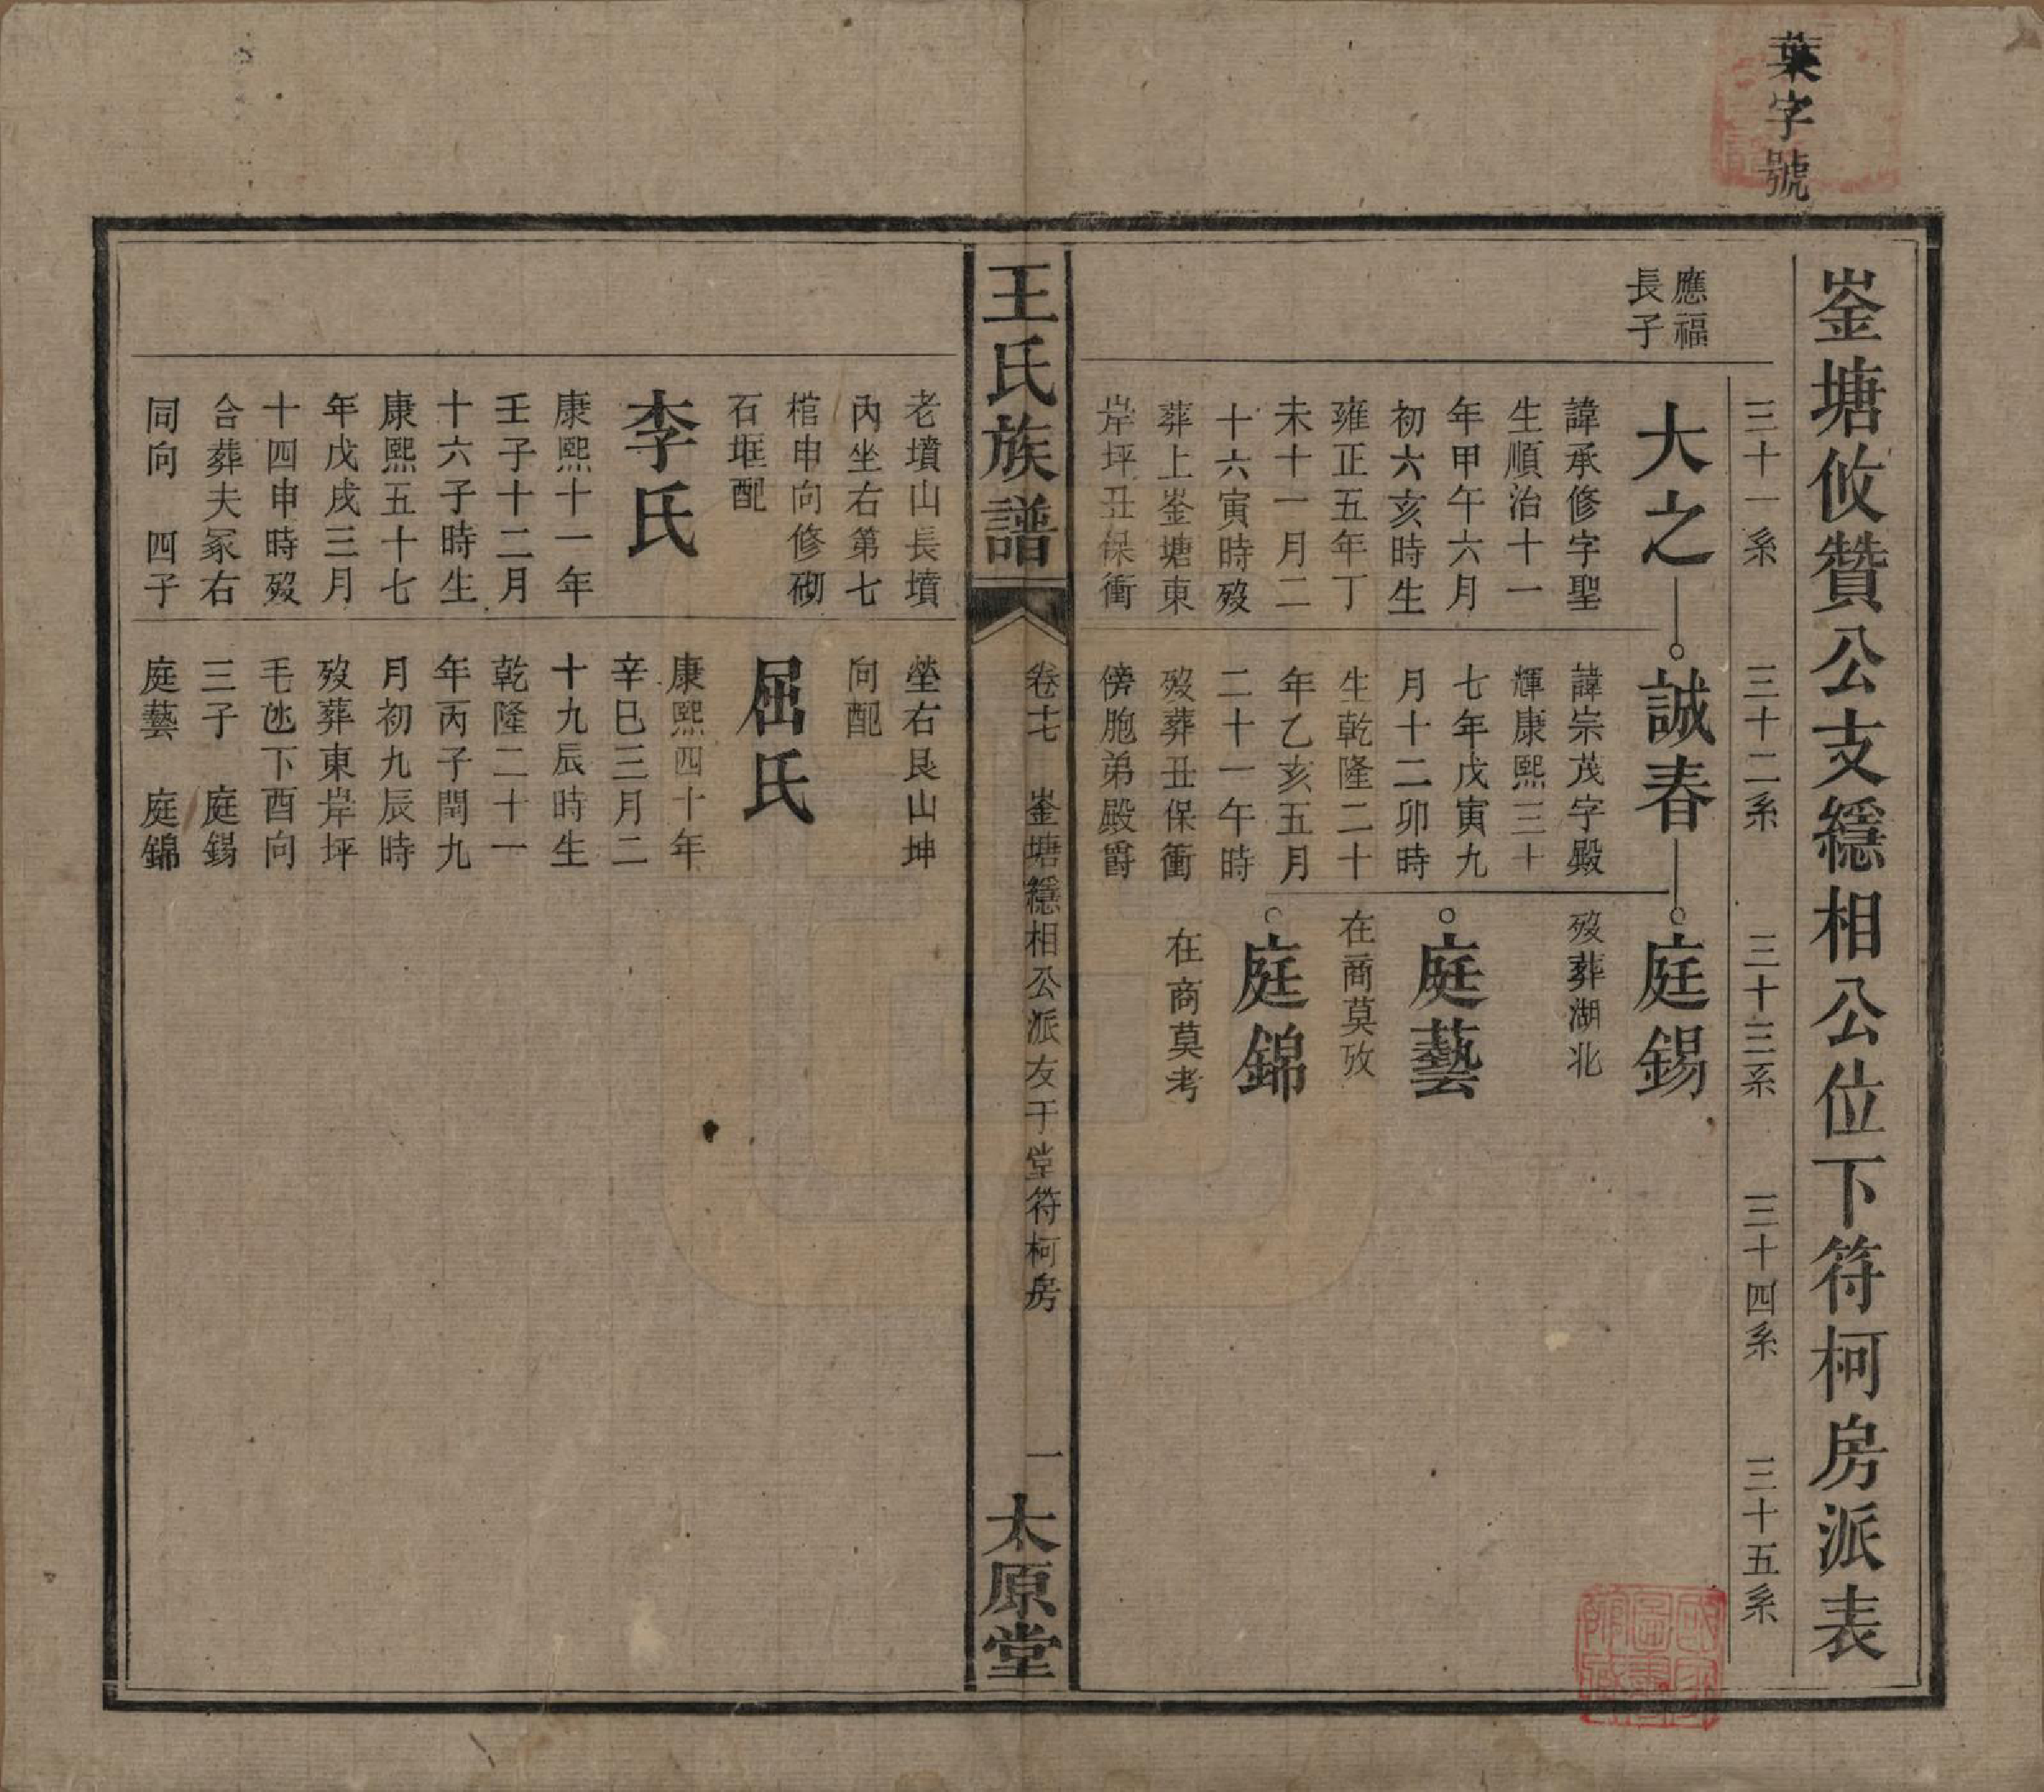 葉字號
崟塘攸贊公支繧相公位下符柯房派表
三十一系
三十二系
三十三系
三十四系
三十五系
應福
長子
大之
諱承修字聖
生順治十一
年甲午六月
初六亥時生
雍正五年丁
未十一月二
十六寅時歿
葬上崟塘東
岸坪丑保衝
老墳山長墳
內坐右第七
棺申向修砌
石堆配
李氏
康熙十一年
壬子十二月
十六子時生
康熙五十七
年戊戌三月
十四申時歿
合葬夫冢右
同向 四子
誠春
諱宗茂字殿
輝康熙三十
七年戊寅九
月十二卯時
生乾隆二十
年乙亥五月
二十一午時
歿葬丑保衝
傍胞弟殿爵
塋右艮山坤
向配
屈氏
康熙四十年
辛巳三月二
十九辰時生
乾隆二十一
年丙子閏九
月初九辰時
歿葬東岸坪
毛氹下酉向
三子 庭錫
庭藝 庭錦
庭錫
歿葬湖北
庭藝
在商莫攷
庭錦
在商莫考
王氏族譜
卷十七 崟塘繧相公派友于堂符柯房 一
太原堂